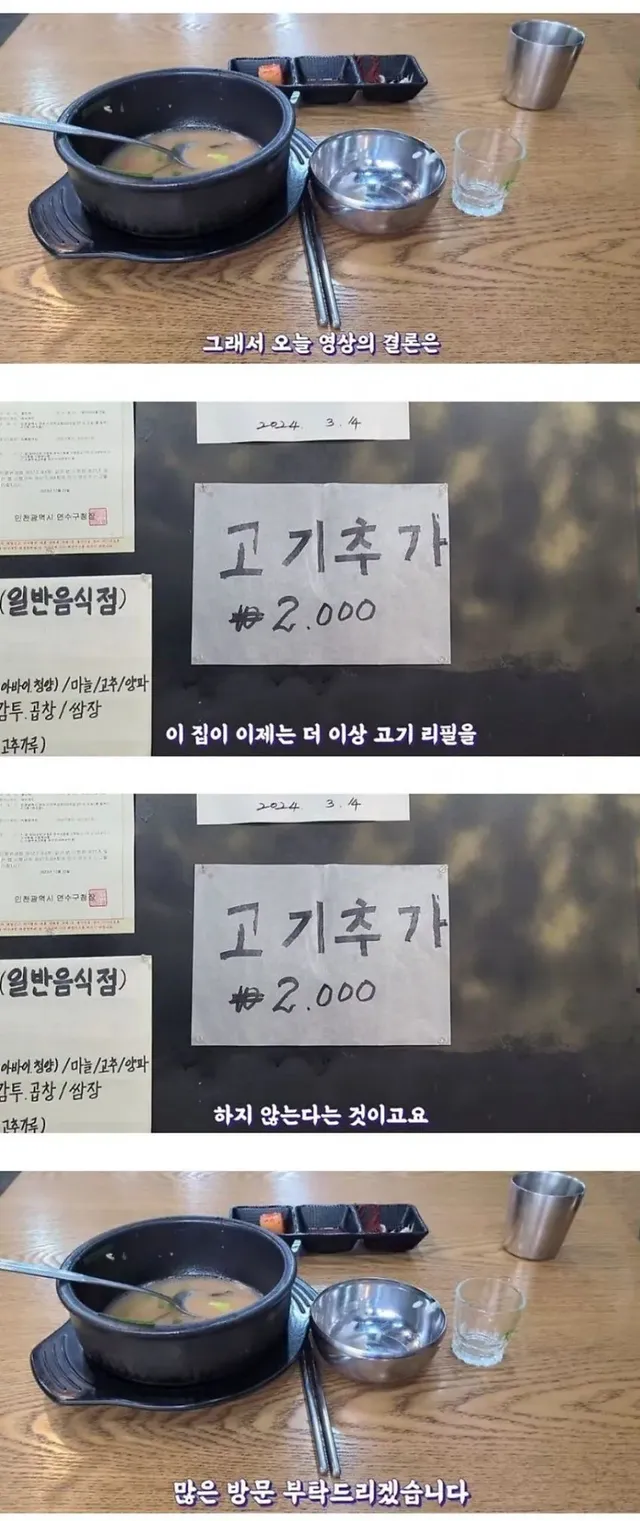 그래서 오늘 영상의 결론은
2024. 3. 14
인천광역시 연수구청장
고기추가
₩2.000
(일반음식점)
아바이.청양) /마늘/고추/양파
감투.곱창/쌈장
고추가루)
이 집이 이제는 더 이상 고기 리필을
2024 3. 14
인천광역시 연수구청장
고기추가
₩2.000
(일반음식점)
아바이.청양) /마늘/고추/양파
감투.곱창/쌈장
고추가루)
하지 않는다는 것이고요
많은 방문 부탁드리겠습니다